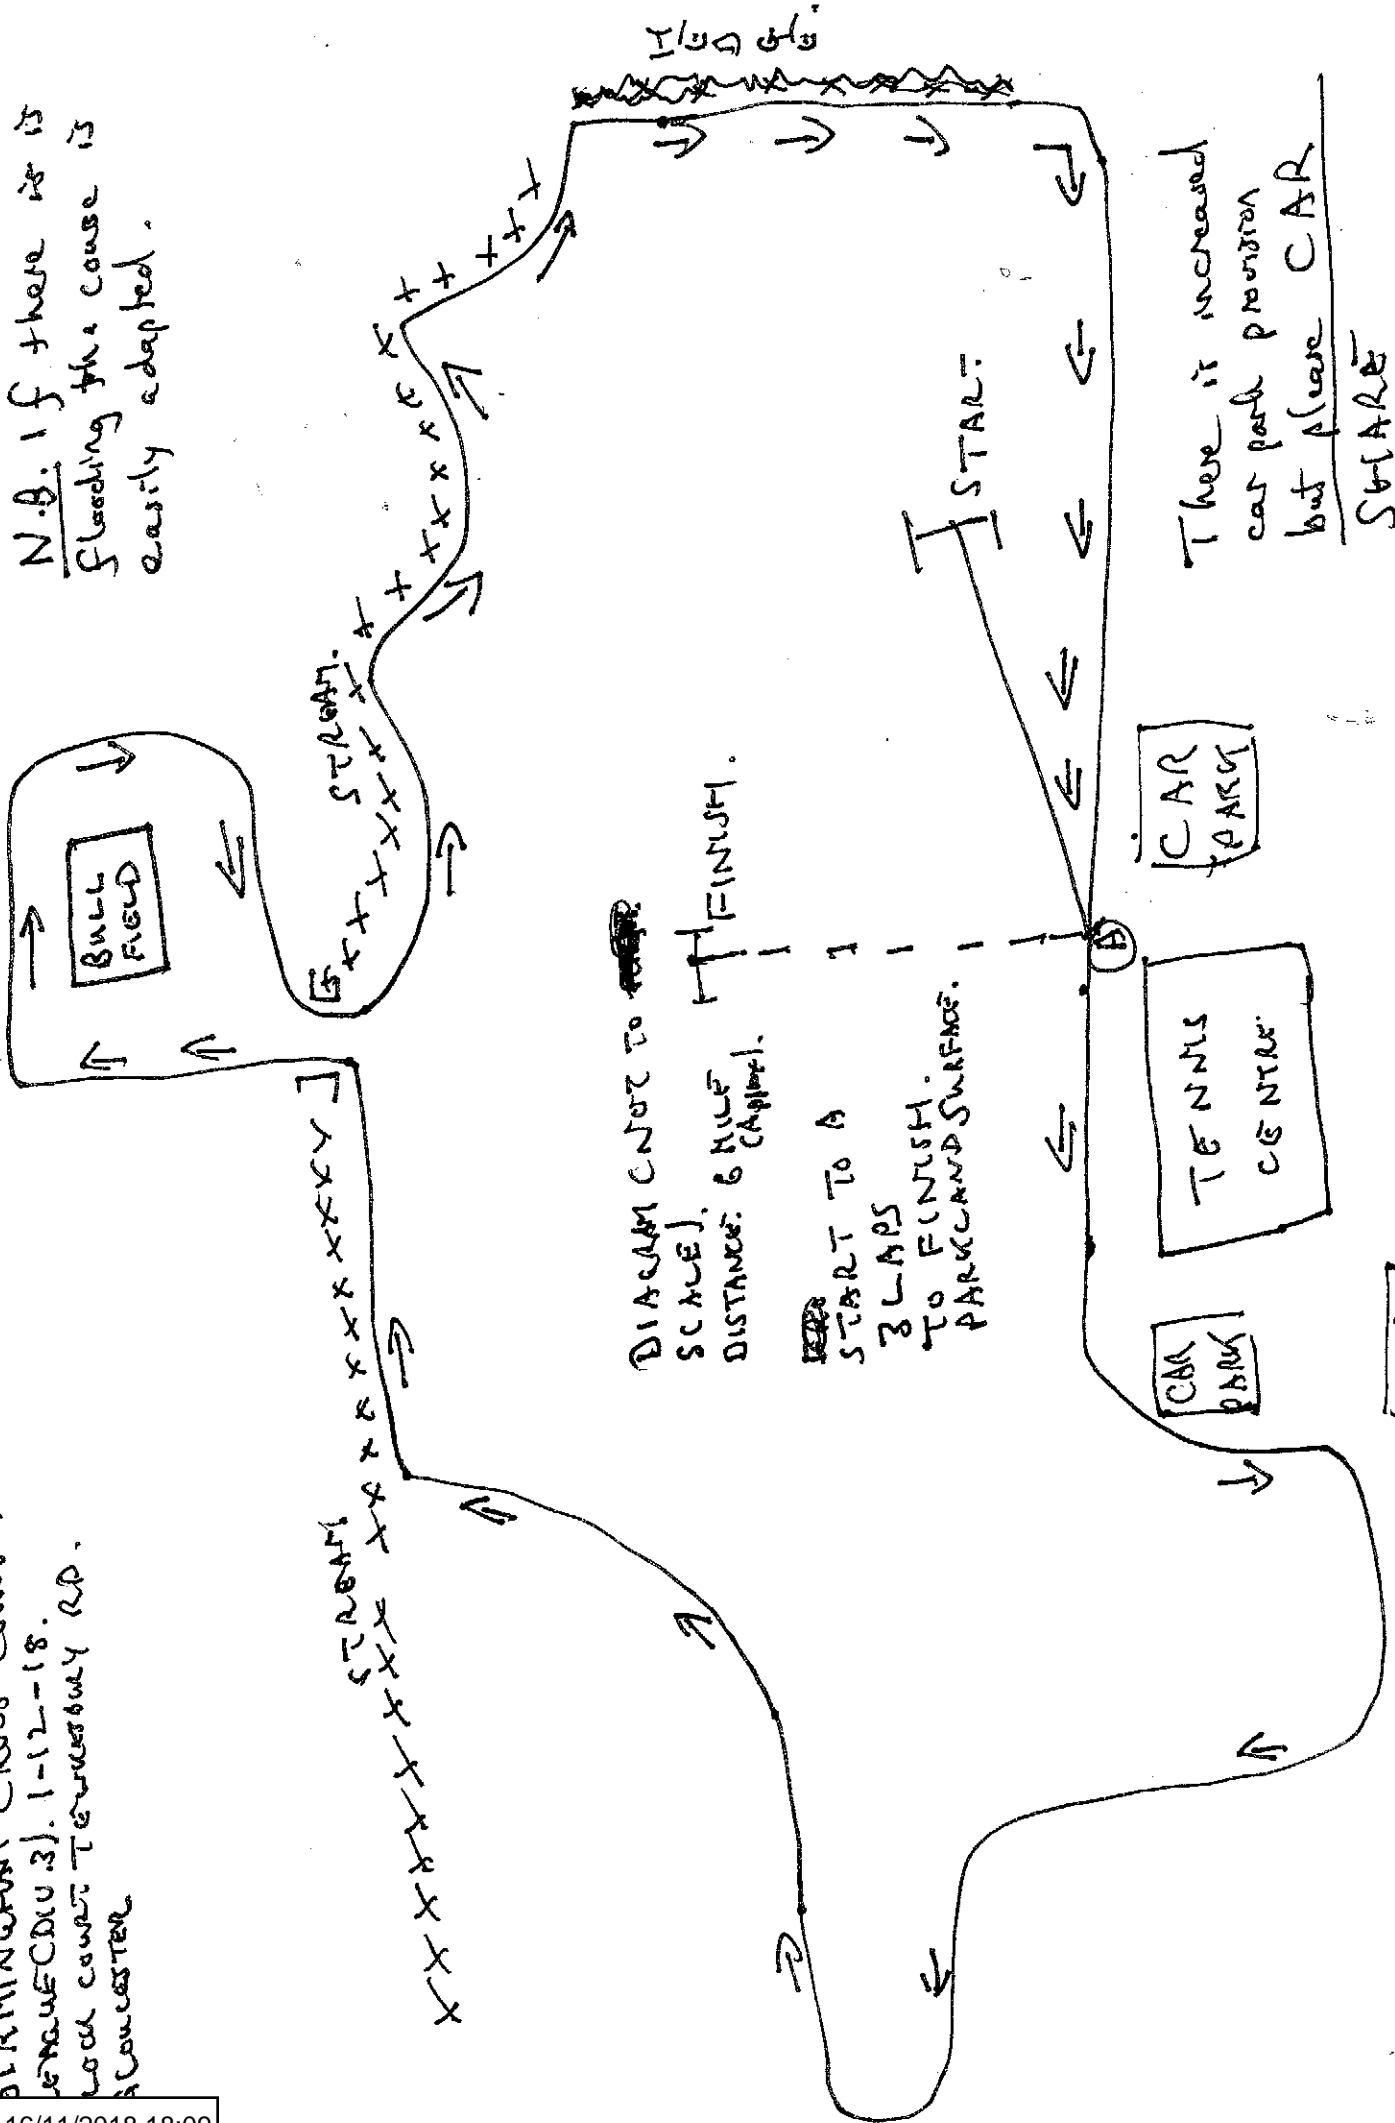 BIRMINGHAM CROSS COUNTRY
LEAGUE (DIV 3). 1-12-18.
COURT TEWKESBURY RD.
GLOUCESTER
N.B. If there is is
flooding the course is
easily adapted.
BULL
FIELD
STREAM
STREAM.
HEDGE.
DIAGRAM (NOT TO
SCALE).
DISTANCE: 6 MILE
(Approx).
START TO A
3 LAPS
TO FINISH.
PARKLAND SURFACE.
FINISH.
START.
A
CAR
PARK
TENNIS
CENTRE
CAR
PARK
There is increased
car park provision
but please CAR
SHARE
16/11/2018 18:09